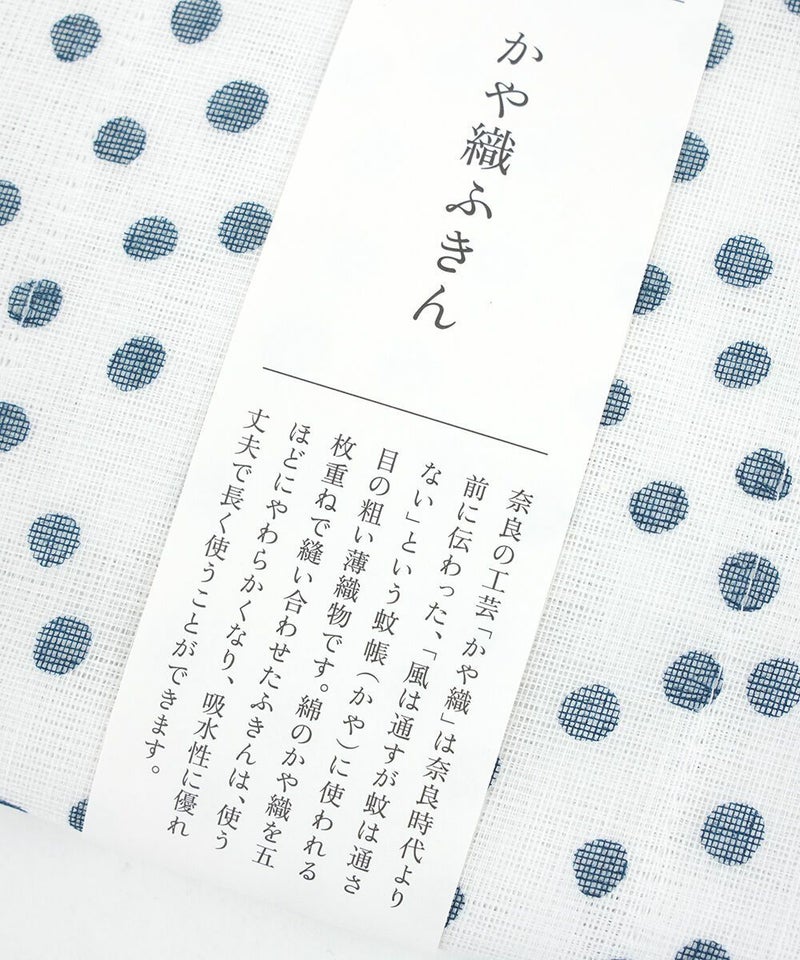 かや織ふきん
奈良の工芸「かや織」は奈良時代より
前に伝わった、「風は通すが蚊は通さ
ない」という蚊帳（かや）に使われる
目の粗い薄織物です。綿のかや織を五
枚重ねで縫い合わせたふきんは、使う
ほどにやわらかくなり、吸水性に優れ
丈夫で長く使うことができます。